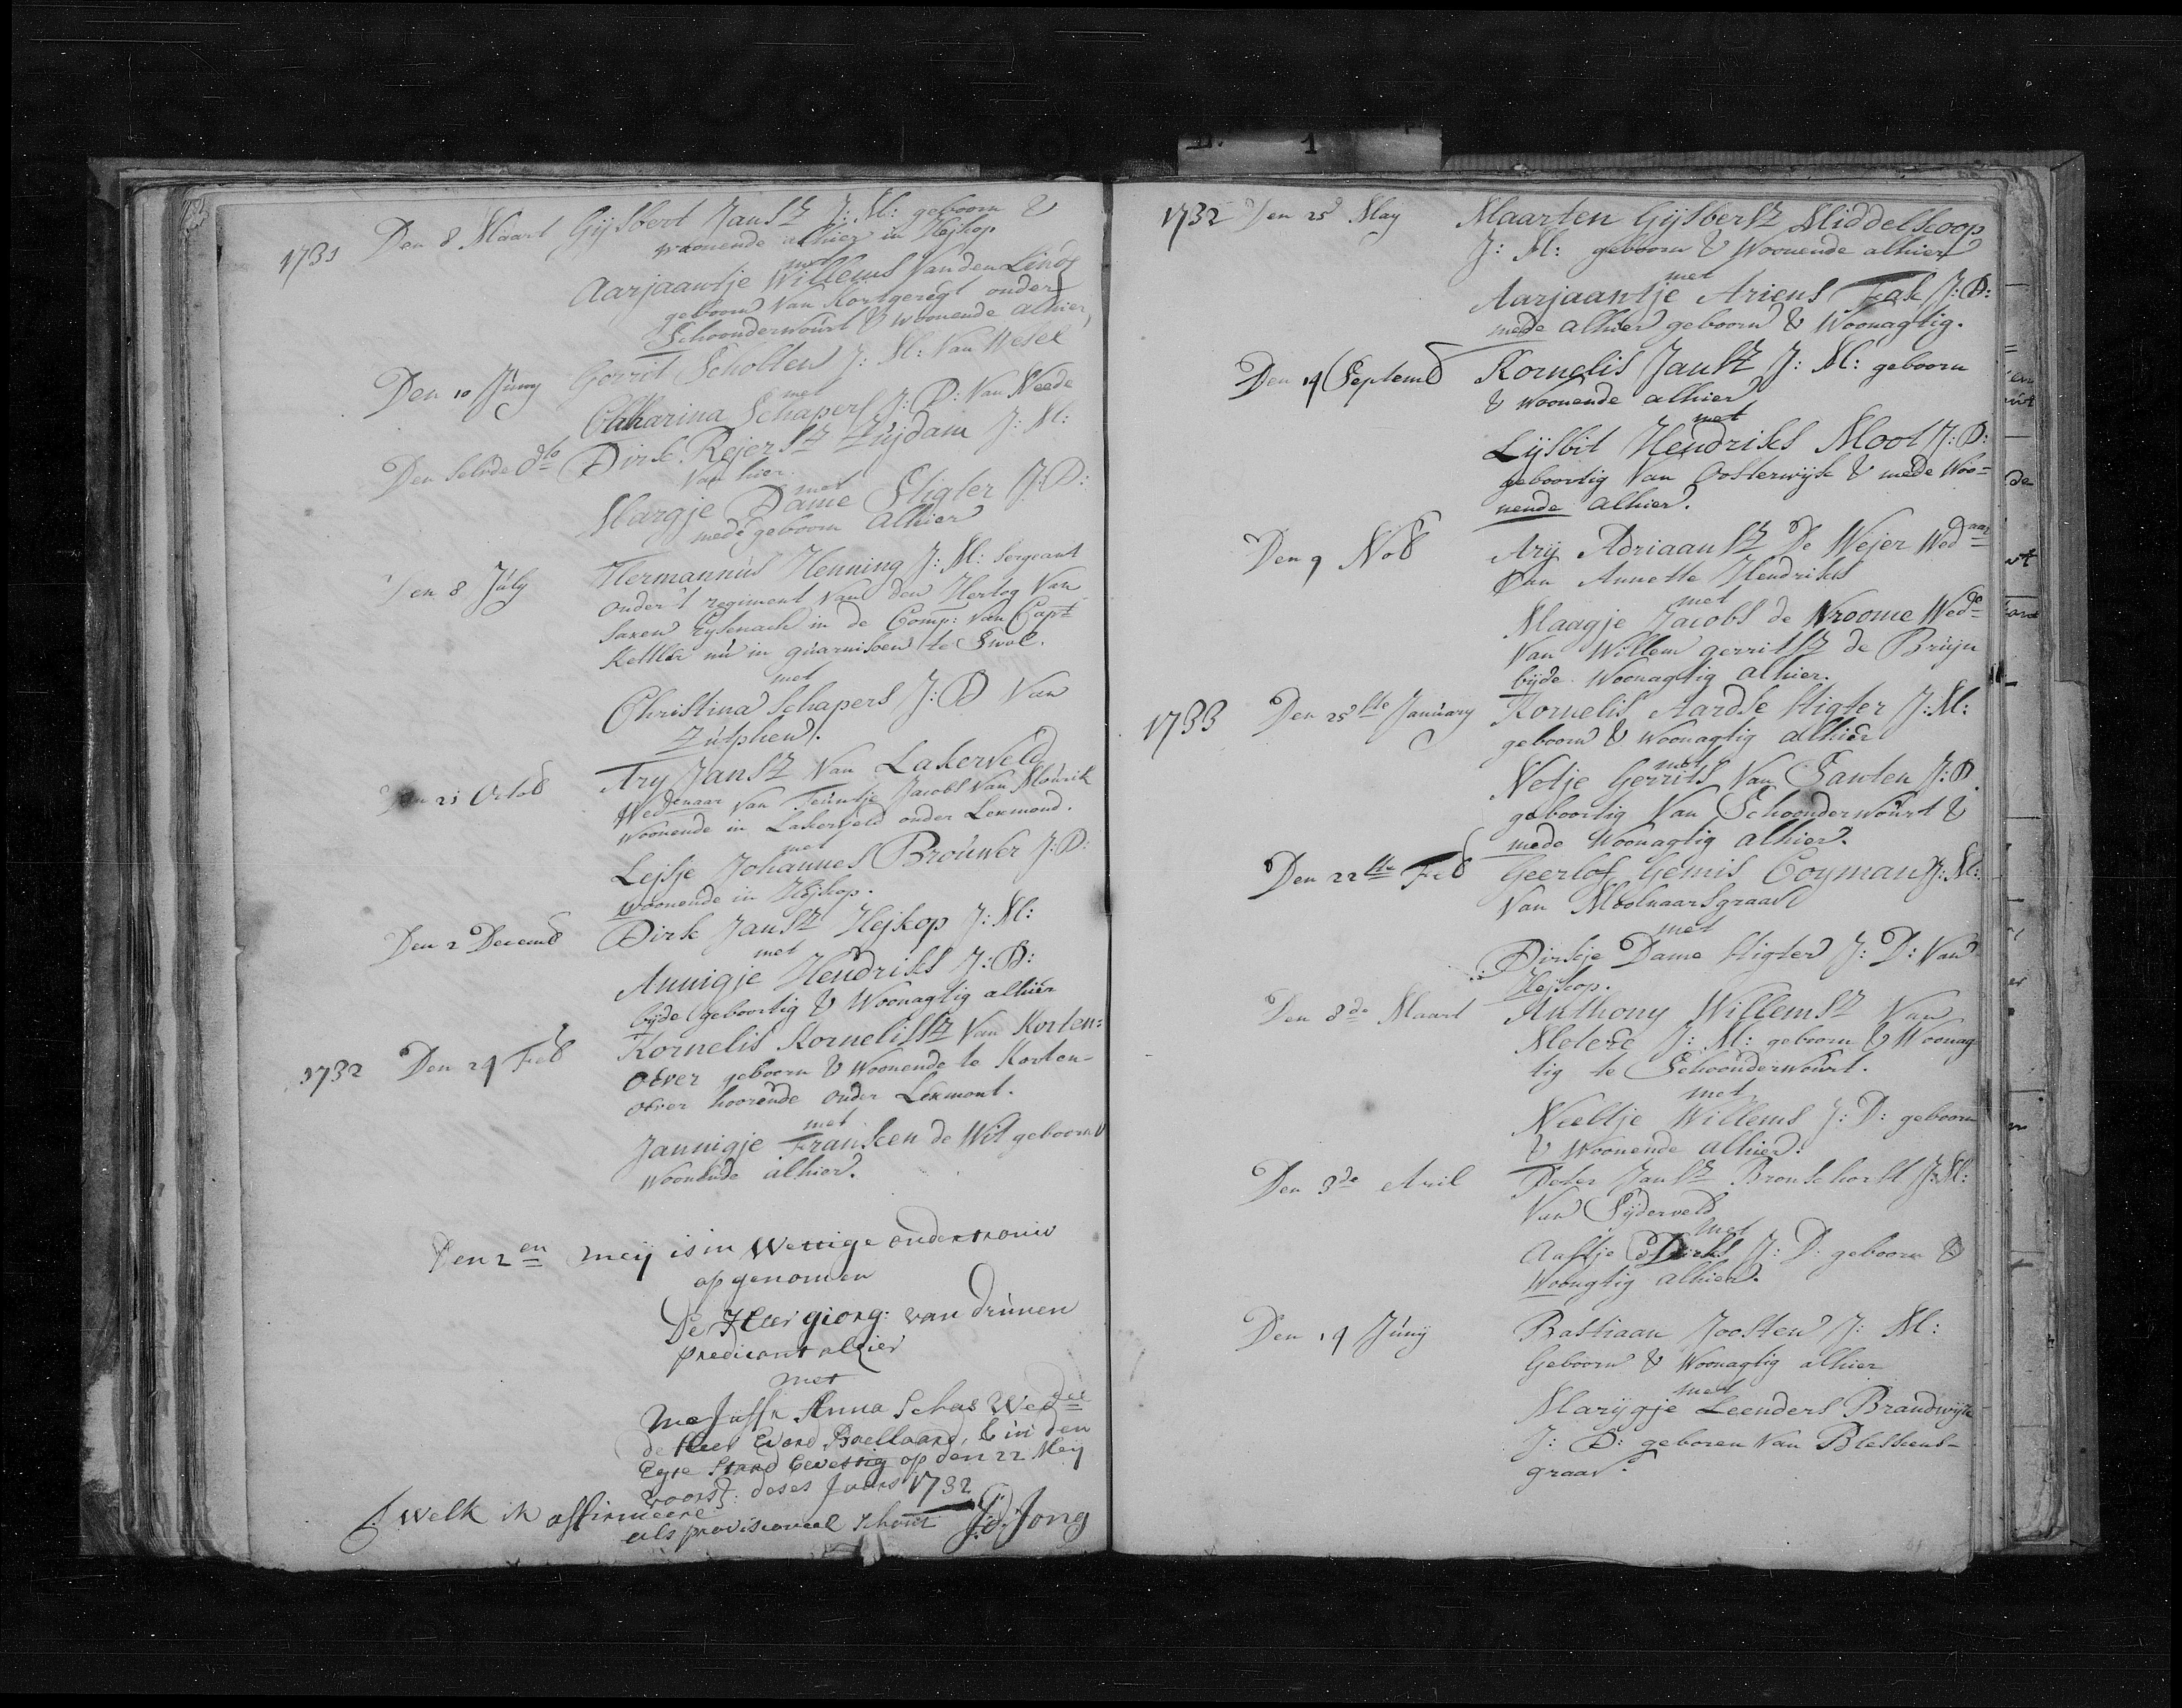 1731 Den 8 Maart Gijsbert Jansz J: M: geboorn &
woonende alhier in Hejkop
met
Aarjaantje Willems Van den Linde
geboorn Van Kortgeregt onder
Schoonderwourt & woonende alhier,
Den 10 Juny Gerrit Scholten J: M: Van Wesel
met
Catharina Schapers J: D: Van Neede
Den selvde dto Dirk Rejersz Zujdam J: M:
Van hier
met
Margje Dame Stigter J: D:
mede geboorn alhier
Den 8 July Hermannus Henning J: M: sergeant
onder 't regiment Van den Hertog Van
Saxen Eysenach in de Comp: Van Capt
Kettler nu in guarnisoen te Swol.
met
Christina Schapers J: D Van
Zutphen.
Den 21 Octob Ary Jansz Van Lakerveld
Wedenaar Van Teuntje Jacobs Van Mourik
woonende in Lakerveld onder Lexmond.
met
Lejsje Johannes Brouwer J: D:
woonende in Hejkop.
Den 2 Decemb Dirk Jansz Hejkop J: M:
met
Annigje Hendriks J: D:
bijde geboortig & Woonagtig alhier
1732 Den 24 Feb Kornelis Kornelissz Van Korten=
oever geboorn & Woonende te Korten-
oever hoorende onder Lexmont.
met
Jannigje Fransen de Wit geboorn &
Woonende alhier.
Den 2en meij is in Wettige ondertrouw
op genomen
De Heer giorg: van drunen
predicant alhier
met
Me Juffr Anna Schas Wedue
de Heer Evord Boellaard, & in den
Egte Staad bevestig op den 22 Meij
voorsz: deses Jaars 1732
't welk ik affirmeere
als provisioneel schout J: d: Jong
1732 Den 25 May Maarten Gijsbertsz Middelkoop
J: M: geboorn & Woonende alhier
met
Aarjaantje Ariens Kok J: D:
mede alhier geboorn & Woonagtig.
Den 14 Septemb Kornelis Jansz J: M: geboorn
& woonende alhier
met
Lijsbit Hendriks Moot J: D:
geboortig Van Oosterwijk & mede Woo=
nende alhier.
Den 9 Nob Arij Adriaansz De Wejer Wedaar
Van Annette Hendriks
met
Maagje Jacobs de Vroome Wede
Van Willem gerritsz de Bruyn
bijde Woonagtig alhier.
1733 Den 25ste January Kornelis Aardse Stigter J: M:
geboorn & Woonagtig alhier
met
Netje Gerrits Van Santen J: D.
geboortig Van Schoonderwourt &
mede Woonagtig alhier.
Den 22ste Feb Geerlof Gemis Coyman J: M:
Van Moolnaarsgraav
met
Dirkje Dame Stigter J: D: Van
Hejkop.
Den 8de Maart Anthony Willemsz Van
Metere J: M: geboorn & Woonag
tig te Schoonderwourt.
met
Neeltje Willems J: D: geboorn
& Woonende alhier.
Den 3de April Peter Jansz Bronkhorst J: M:
Van Sijderveld
met
Aaltje Dirks J: D: geboorn &
Woongtig alhier.
Den 14 Junij Bastiaan Joosten J: M:
Geboorn & Woonagtig alhier
met
Marijgje Leenders Brandwijk
J: D: geboren Van Bleskens-
graav.
1